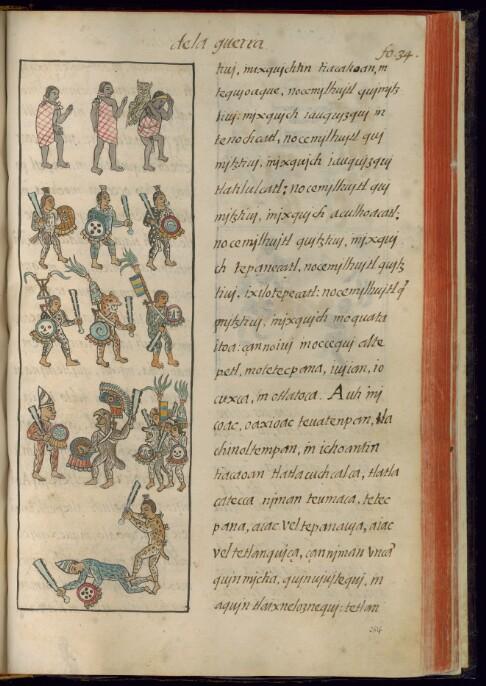 de la guerra
fo. 34.
tiuj, mixqujchtin tiacaoan, in
tequjoaque, nocemjlhujtl qujmjtz
tiuj: mjxqujch iauqujzquj in
tenochcatl, nocemjlhujtl quj
mjtztiuj, mjxqujch iauqujzquj
tlatilulcatl; nocemjlhujtl quj
mjtztiuj, mjxqujch aculhoacatl;
nocemjlhujtl qujtztiuj, mjxquj
ch tepanecatl, nocemjlhujtl qujtz
tiuj, ixilotepecatl: nocemjlhujtl q
mjtztiuj, mjxqujch moquata
itoa: can no iuj mocequj alte
petl, motetecpana, iujian, io
cuxca, in otlatoca. Auh injc
oac, oaxioac teuatenpan, tla
chinoltempan, in ichoantin
tiacaoan tlatlacuchcalca, tlatla
catecca njman teumaca, tetec
pana, aiac vel tepanauja, aiac
vel tetlanqujça, can njman vnca
qujnmjctia, qujnujujtequj, in
aqujn tlaixneloznequj: tetlan